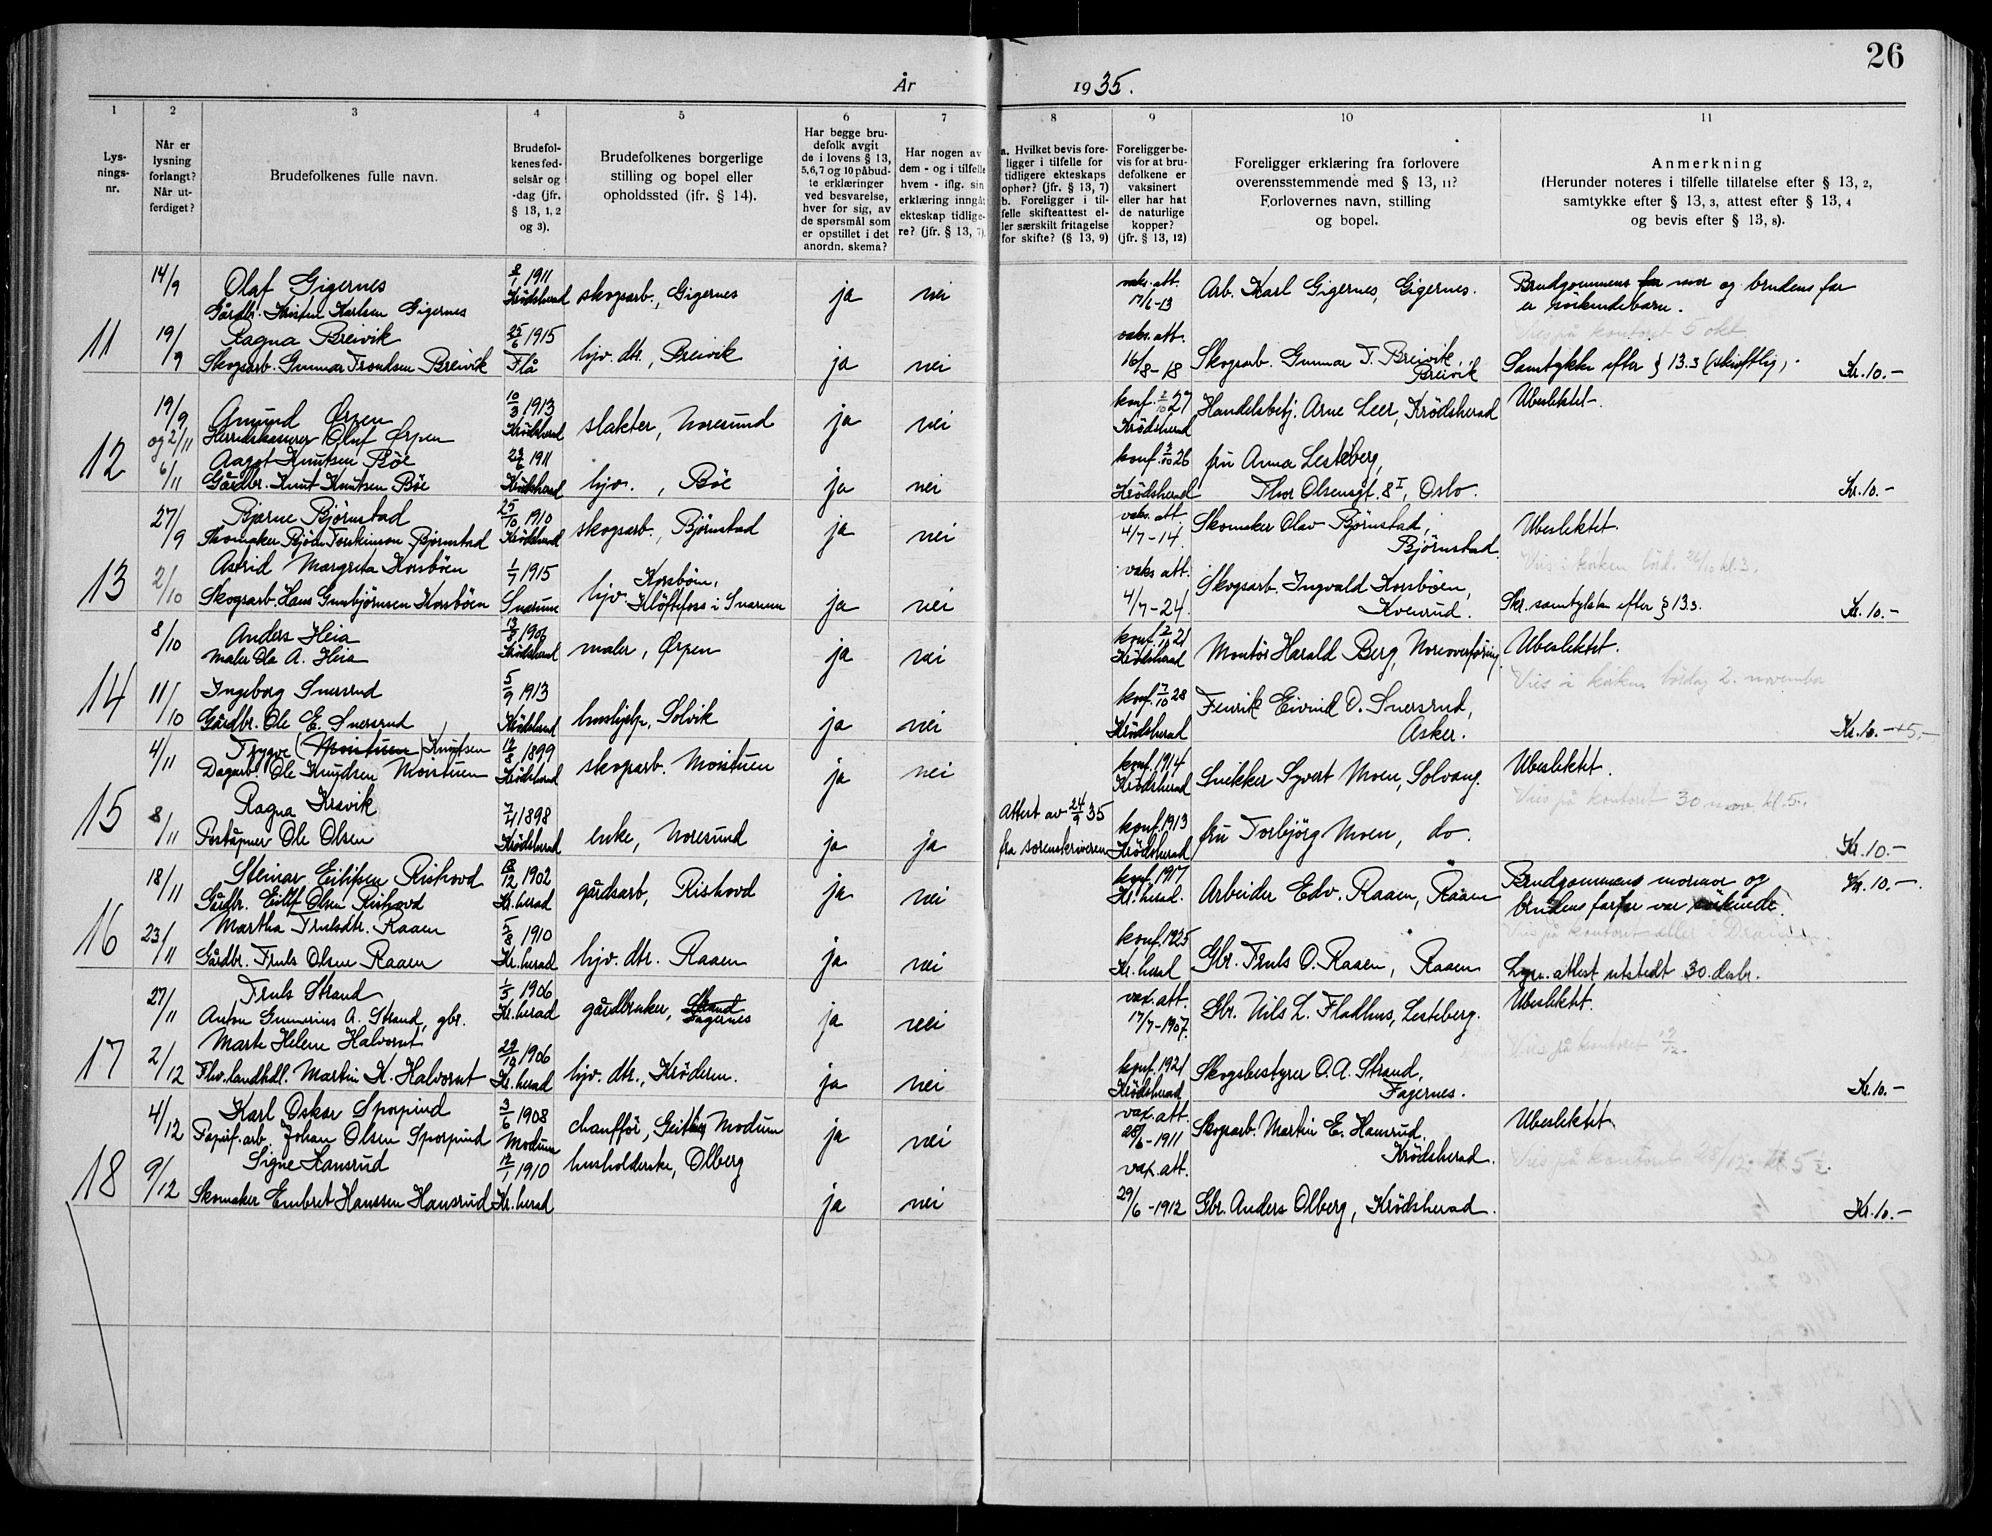 26
År 1935.
1 2 3 4 5 6 7 8 9 10 11
Lys-
nings-
nr.
Når er
lysning
forlangt?
Når ut-
ferdiget?
Brudefolkenes fulle navn.
Brudefol-
kenes fød-
selsår og
-dag (jfr.
§ 13, 1, 2
og 3).
Brudefolkenes borgerlige
stilling og bopel eller
opholdssted (jfr. § 14).
Har begge bru-
defolk avgit
de i lovens § 13,
5,6,7 og 10 påbud-
te erklæringer
ved besvarelse,
hver for sig, av
de spørsmål som
er opstillet i det
anordn. skema?
Har nogen av
dem - og i tilfelle
hvem - iflg. sin
erklæring inngåt
ekteskap tidlige-
re? (jfr. § 13, 7).
a. Hvilket bevis fore-
ligger i tilfelle for
tidligere ekteskaps
ophør? (jfr. § 13, 7)
b. Foreligger i til-
felle skifteattest el-
ler særskilt fritagelse
for skifte? (§ 13, 9)
Foreligger be-
vis for at bru-
defolkene er
vaksinert
eller har hat
de naturlige
kopper?
(jfr. § 13, 12)
Foreligger erklæring fra forlovere
overensstemmende med § 13, 11?
Forlovernes navn, stilling
og bopel.
Anmerkning
(Herunder noteres i tilfelle tillatelse efter § 13, 2,
samtykke efter § 13, 3, attest efter § 13, 4
og bevis efter § 13, 8).
11
14/9 Olaf Gigernes 8/1 1911 skogsarb., Gigernes ja nei vaks. att. Arb. Karl Gigernes, Gigernes. Brudgommens far mor og brudens far
Gårdbr. Kristen Karlsen Gigernes Krödsherad 17/6-13 er söskendebarn.
19/9 Ragna Breivik 25/6 1915 hjv. dtr., Breivik vaks. att. Vies på kontoret 5 okt
Skogsarb. Gunnar Trondsen Breivik Flå ja nei 16/8-18 Skogsarb. Gunnar T. Breivik, Breivik Samtykke efter § 13.3 (skriftlig) Kr. 10.-
12
19/9 og 2/11 Amund Ørpen 10/3 1913 slakter, Noresund ja nei konf. 2/10 27 Handelsbetj. Arne Leer, Krödsherad Ubeslektet.
Herredskasserer Oluf Ørpen Krödsherad Krödsherad
6/11 Aagot Knutsen Böe 23/6 1911 hjv., Böe konf. 3/10 26 fru Anna Lesteberg,
Gårdbr. Knut Knutsen Böe Krödsherad ja nei Krödsherad Thor Olsensgt. 8 I, Oslo. Kr. 10.-
13
27/9 Bjarne Björnstad 25/10 1910 skogsarb., Björnstad ja nei vaks. att. Skomaker Olav Björnstad, Ubeslektet.
Skomaker Björn Torkinson Björnstad Krödsherad 4/7-14. Björnstad. Vies i kirken lörd. 26/10 kl. 3.
2/10 Astrid Margreta Korsböen 1/7 1915 hjv. Korsböen, vaks att. Skogsarb. Ingvald Korsböen,
Skogsarb. Hans Gunbjörnsen Korsböen Snarum Klöftefoss i Snarum ja nei 4/7-24. Kvenrud. Skr. samtykke efter § 13.3. Kr. 10.-
14
8/10 Anders Heia 13/3 1906 maler, Ørpen ja nei konf. 2/10 21 Montör Harald Berg, Noreoverföring. Ubeslektet.
Maler Ola A. Heia Krödsherad Krödsherad Vies i kirken lördag 2. november
11/10 Ingeborg Snersrud 5/9 1913 hushjelp, Solvik konf. 7/10 28 Fenrik Eivind O. Snersrud,
Gårdbr. Ole E. Snersrud Krödsherad ja nei Krödsherad Asker. Kr. 10.- +5.-
15
4/11 Trygve (Moistuen) Knudsen 12/8 1899 skogsarb. Moistuen ja nei konf. 1914 Snekker Syvert Moen, Solvang. Ubeslektet.
Dagarb. Ole Knudsen Moistuen Krödsherad Krödsherad Vies på kontoret 30 nov kl. 5.
8/11 Ragna Kravik 7/4 1898 enke, Noresund Attest av 24/9 35 konf. 1913 fru Torbjörg Moen, do.
Poståpner Ole Olsen Krödsherad ja ja fra sorenskriveren Krödsherad Kr. 10.-
16
18/11 Steinar Eilifsen Rishovd 18/12 1902 gårdsarb, Rishovd ja nei konf. 1917 Arbeider Edv. Raaen, Raaen Brudgommens mormor og Kr. 10.-
Gårdbr. Eilif Olsen Rishovd Kr. herad Kr. herad. brudens farfar var söskende.
23/11 Martha Trulsdtr. Raaen 5/8 1910 hjv. dtr. Raaen konf. 1925 Vies på kontoret eller i
Gårdbr. Truls Olsen Raaen Kr. herad ja nei Kr. herad Gbr. Truls O. Raaen, Raaen Lysn. attest utstedt 30. desbr.
17
27/11 Truls Strand 1/5 1906 gårdbruker, Strand Fagernes ja nei vax. att. Gbr. Nils L. Fladhus, Lesteberg. Ubeslektet.
Anton Gunnerius A. Strand, gbr. Kr. herad 17/7-1907.
2/12 Marte Helene Halvorsrut 29/10 1906 hjv. dtr., Kröderen. konf. 1921 Skogsbestyrer O. A. Strand, Vies på kontoret
Fhv. landhdl. Martin K. Halvorsrut Kr. herad ja nei Krödsherad Fagernes. Kr. 10.-
18
4/12 Karl Oskar Sporpind 3/6 1908 chaufför, Geithus, Modum ja nei vax. att. Skogsarb. Martin E. Hansrud. Ubeslektet
Papirf. arb. Johan Olsen Sporpind Modum 28/6-1911 Krödsherad.
9/12 Signe Hansrud 12/1 1910 husholderske, Olberg vax. att. Vies på kontoret 28/12 kl 5 1/2
Skomaker Embret Hanssen Hansrud Kr. herad ja nei 29/6-1912 Gbr. Anders Olberg, Krödsherad. Kr. 10.-